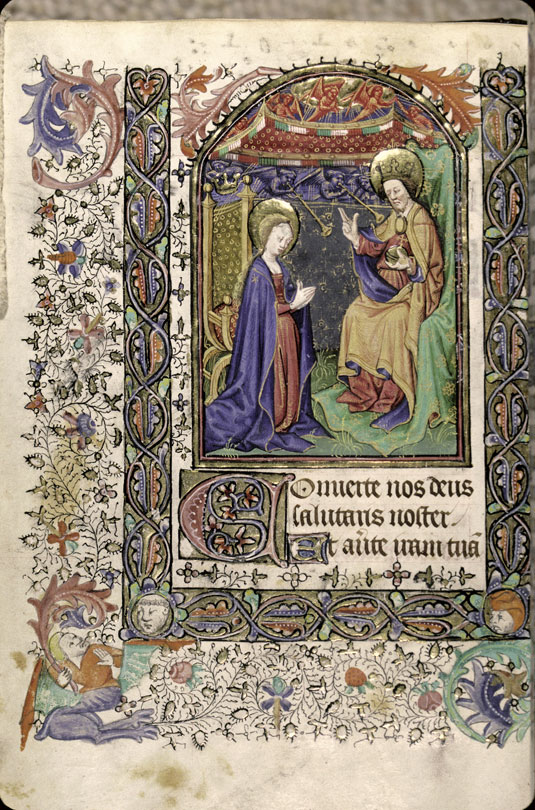 Conuerte nos deus
salutaris noster
Et au̅te iram tua̅